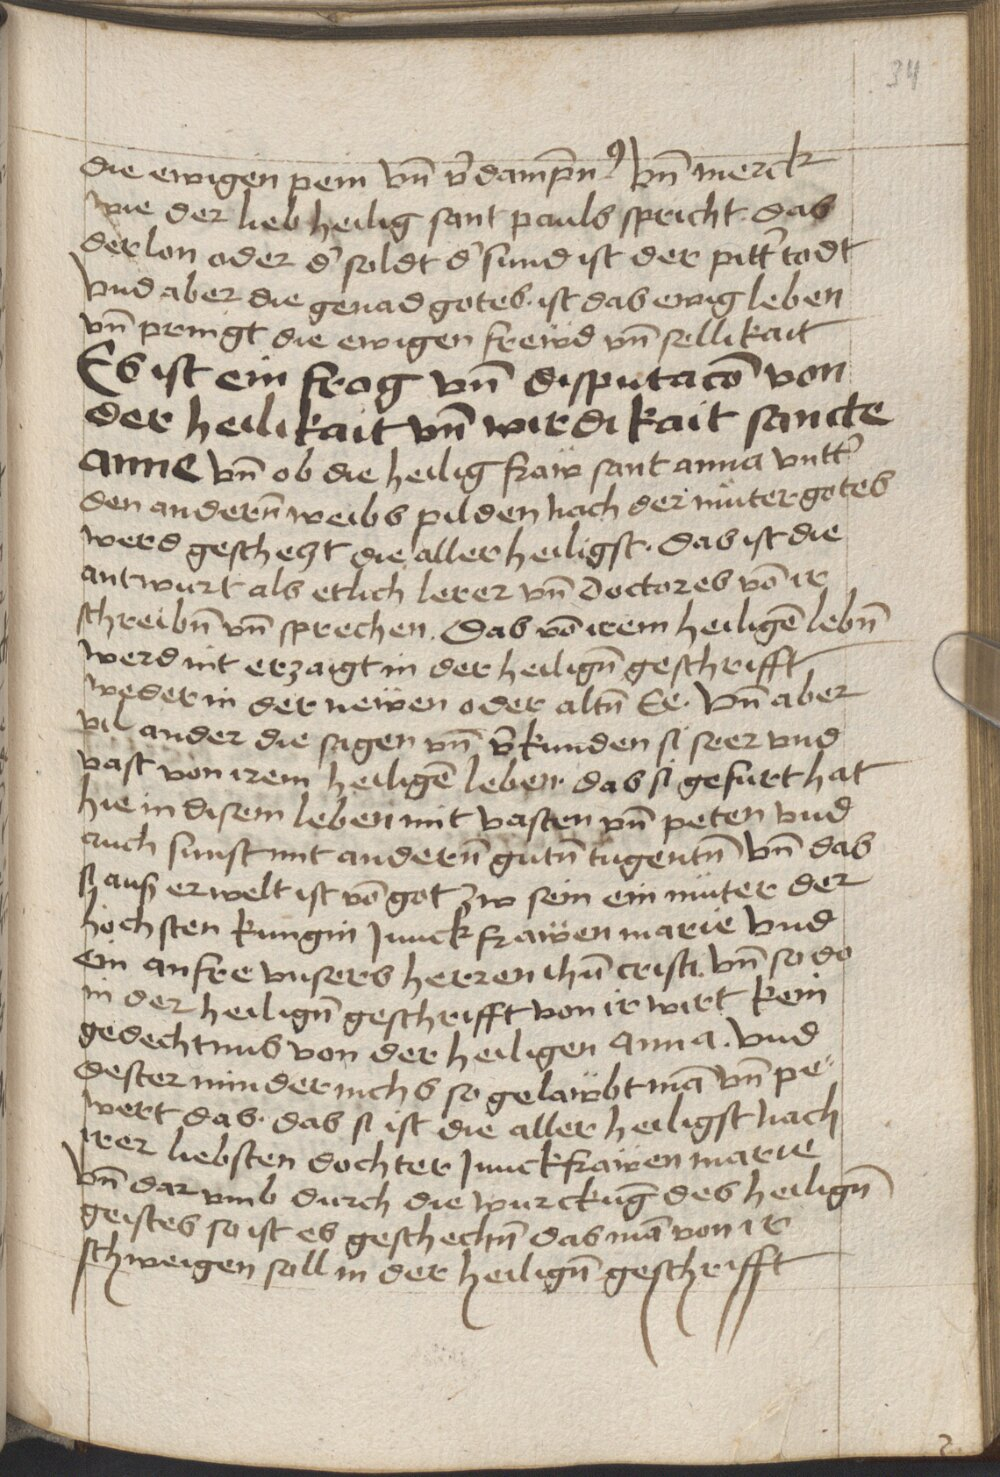 34
die ewigen pein vn̄ v̄dampn̄ꝰ vn̄ merck
wie der lieb heilig sant pauls spricht. das
der lon oder d' soldt d' sund ist der pitt' todt
vnd aber die genad gotes. ist das ewig leben
vn̄ pringt die ewigen frewd vn̄ sellikait
Es ist ein frag vn̄ disputacō von
der heilikait vn̄ wirdikait sancte
anne vn̄ ob die heilig fraẅ sant anna vntt'
den andern̄ weibs pilden nach der muter gotes
werd geschetzt die aller heiligst. das ist die
antwurt als etlich lerer vn̄ doctores vō ir
schreibn̄ vn̄ sprechen. Das vō irem heiligē lebn̄
werd nit erzaigt in der heilign̄ geschrifft
weder in der neẅen oder altn̄ Ee. vn̄ aber
vil ander die sagen vn̄ v̄kunden si seer vnd
vast von irem heiligē leben. das si gefurt hat
hie in disem leben mit vasten vn̄ peten vnd
auch sunst mit andern̄ gutn̄ tugentn̄ vn̄ das
si auß erwelt ist vō got zw sein ein muter der
hochsten kungin junckfraẅen marie vnd
ein anfre vnsers herren ihū cristi. vn̄ so do
in der heilign̄ geschrifft von ir wirt kein
gedechtnus von der heiligen anna. vnd
dester minder nichs so gelaẅbt mā vn̄ pe
wert das. das si ist die aller heiligst nach
irer liebsten dochter junckfraẅen marie
vn̄ dar vmb durch die wurckūg des heilign̄
geistes so ist es geschechn̄ das mā von ir
schweigen soll in der heilign̄ geschrifft